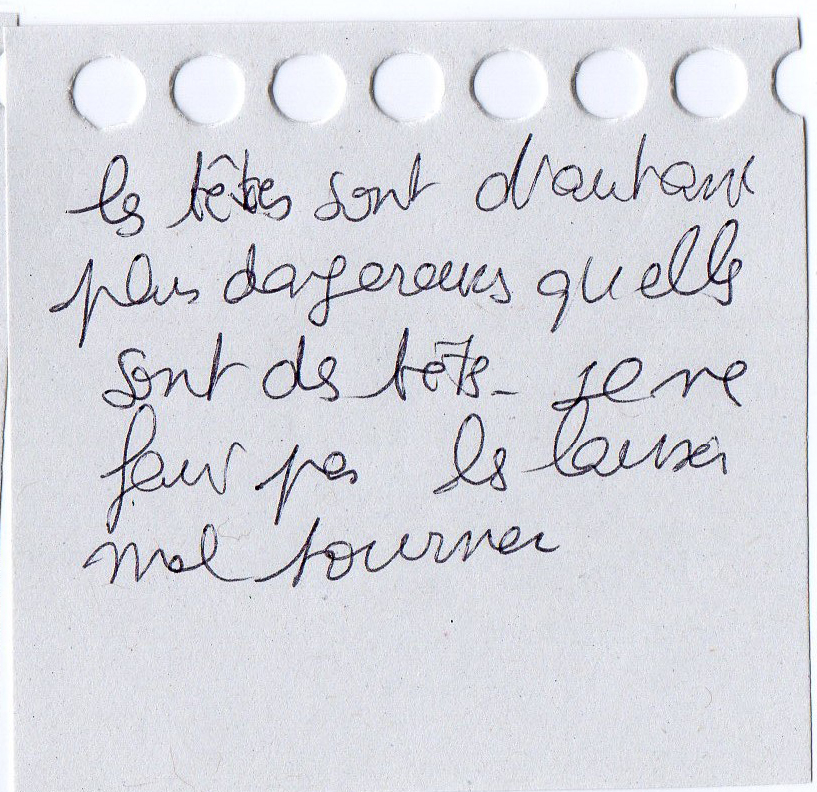 les têtes sont d'autant
plus dangereuses qu elles
sont des têtes_ ne
faut pas les laisser
mal tourner